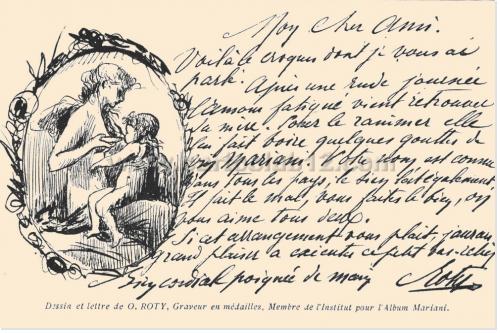 Mon Cher Ami.
Voilà le croquis dont je vous ai
parlé. Après une rude journée
l'amour fatigué vient retrouver
sa mère. Pour le ranimer elle
lui fait boire quelques gouttes de
Mariani. Votre nom est connu
dans tous les pays, le sien l'est également
Il fait le mal, vous faites le bien, on
vous aime tous deux.
Si cet arrangement vous plait, j'aurais
grand plaisir à exécuter ce petit bas-relief
cordiale poignée de main
Roty
Dessin et lettre de O. ROTY, Graveur en médailles, Membre de l'Institut pour l'Album Mariani.